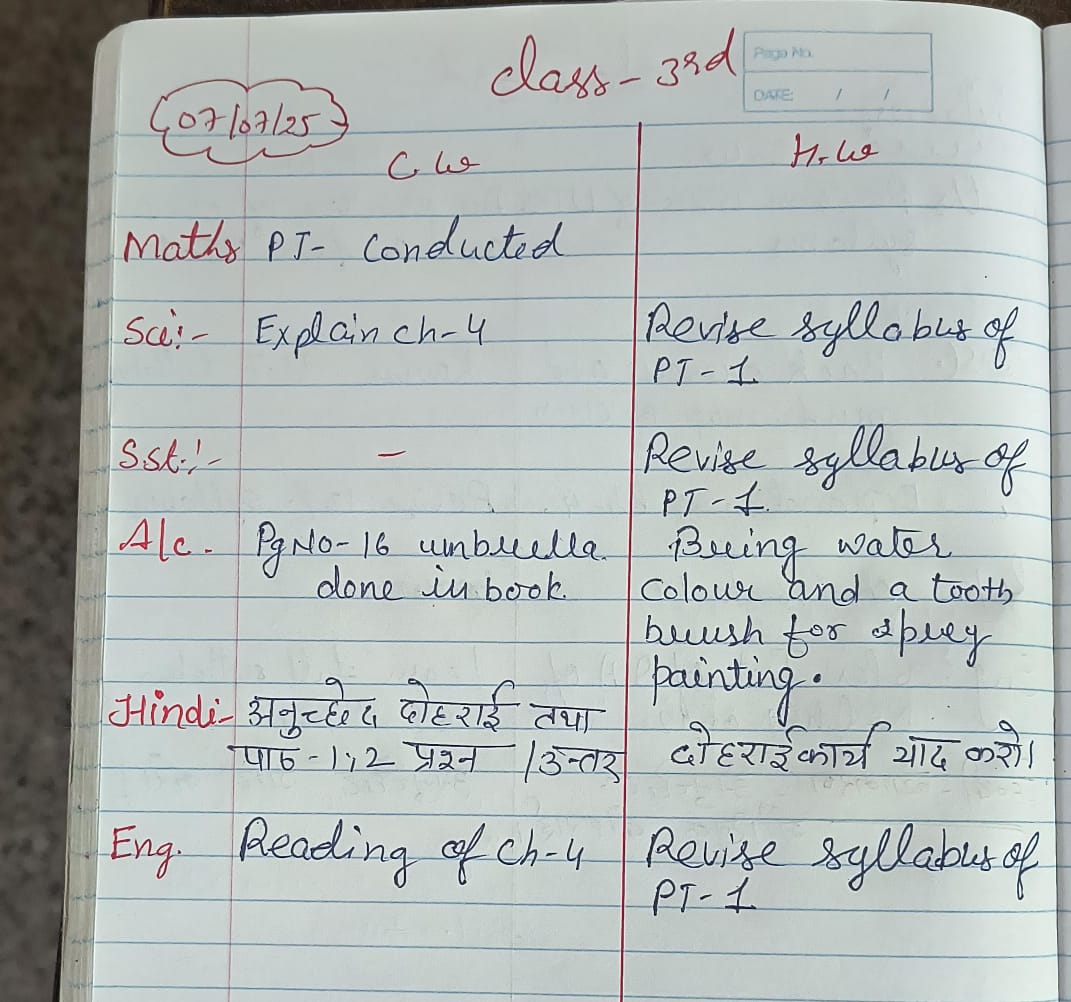 class - 3rd
Page No.
DATE: / /
07/07/25
C.W
H.W
Maths PT- Conducted
Sci:- Explain ch-4 Revise syllabus of
PT-1
S.st:- - Revise syllabus of
PT-1.
A/c. Pg No-16 umbrella Bring water
done in book. colour and a tooth
brush for sprey
painting.
Hindi- अनुच्छेद दोहराई तथा
पाठ-1,2 प्रश्न /उत्तर दोहराई कार्य याद करो।
Eng. Reading of ch-4 Revise syllabus of
PT-1